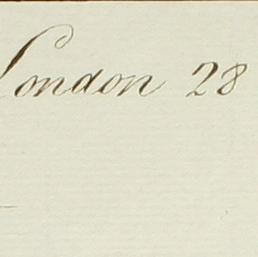 London 28